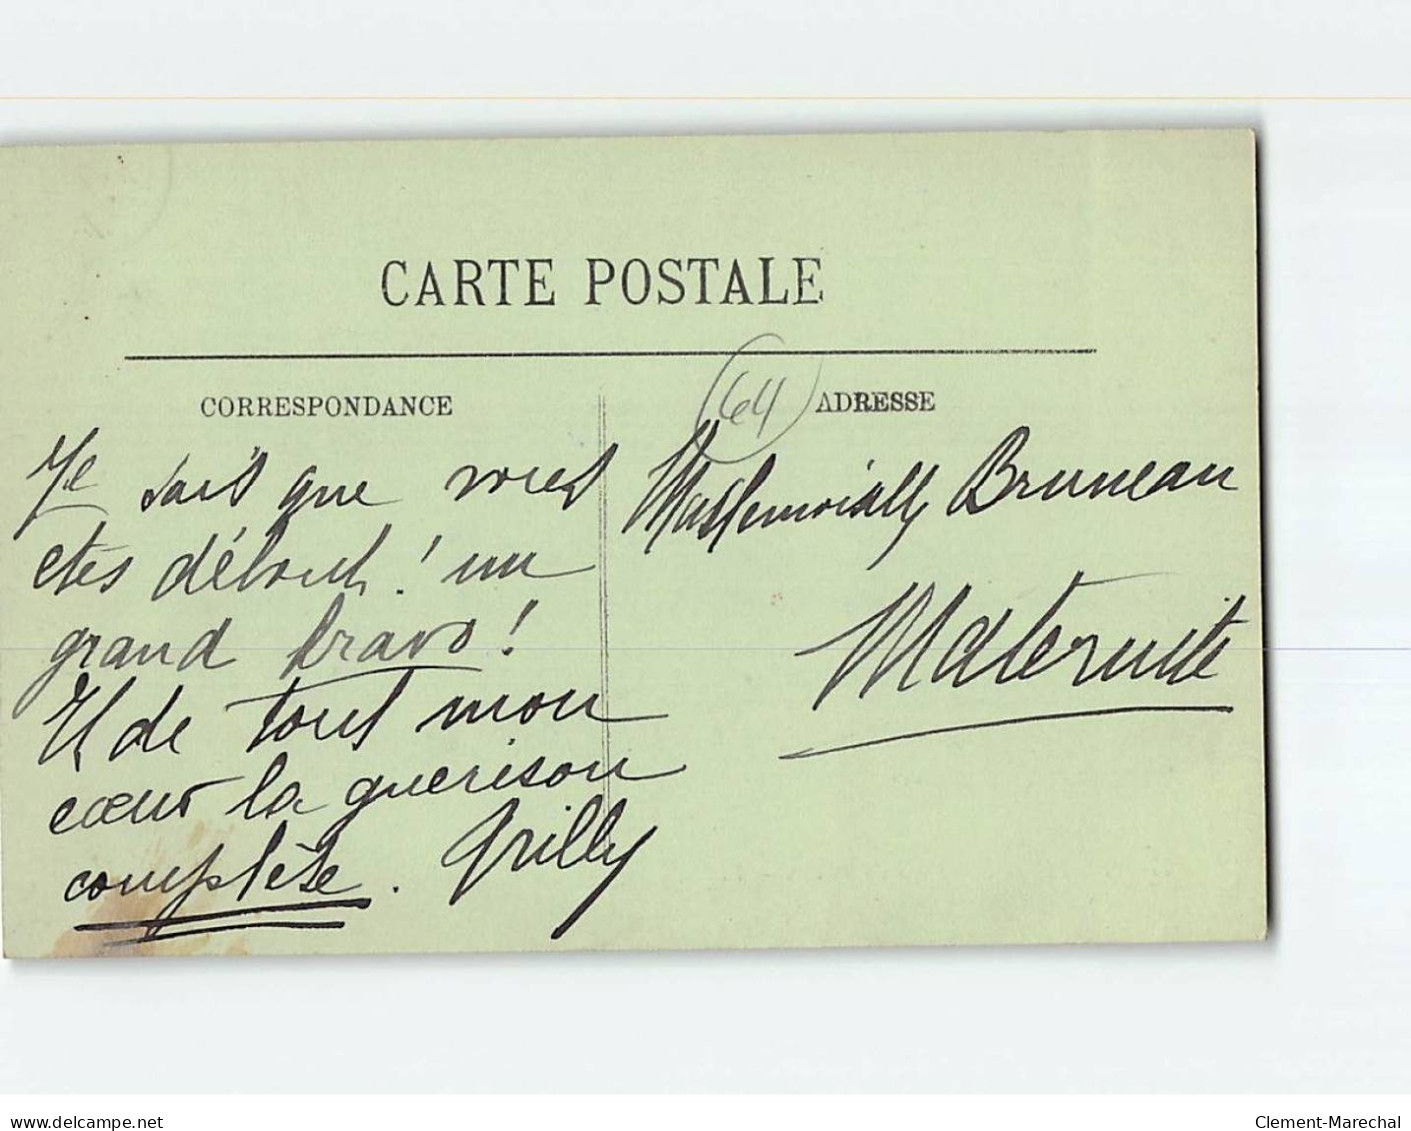 CARTE POSTALE
CORRESPONDANCE
64
ADRESSE
Je sais que vous
etes débout! un
grand bravo!
& de tout mon
cœur la guerison
complète.
Mademoiselle Bruneau
Maternité
delcampe.net
Clement-Marechal